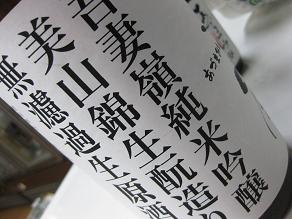 あづま
吾妻嶺純米吟醸
美山錦生酛造り
無濾過生原酒